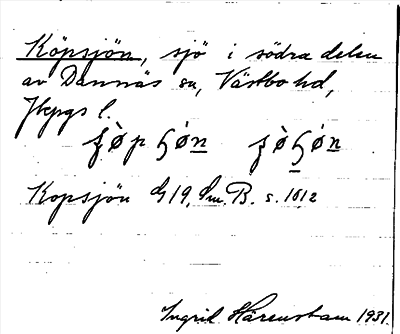 Köpsjön, sjö i södra delen
av Dannäs sn, Västbo hd,
Jkpgs l.
Kopsjön G 19, Sm. B. s. 1012
Ingrid Härenstam 1931.